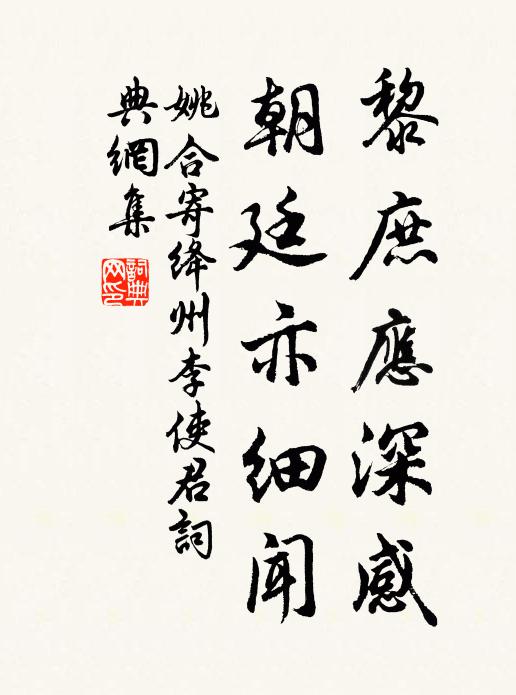 黎庶應深感
朝廷亦細聞
姚合寄绛州李使君詞
典網集
詞典
网印